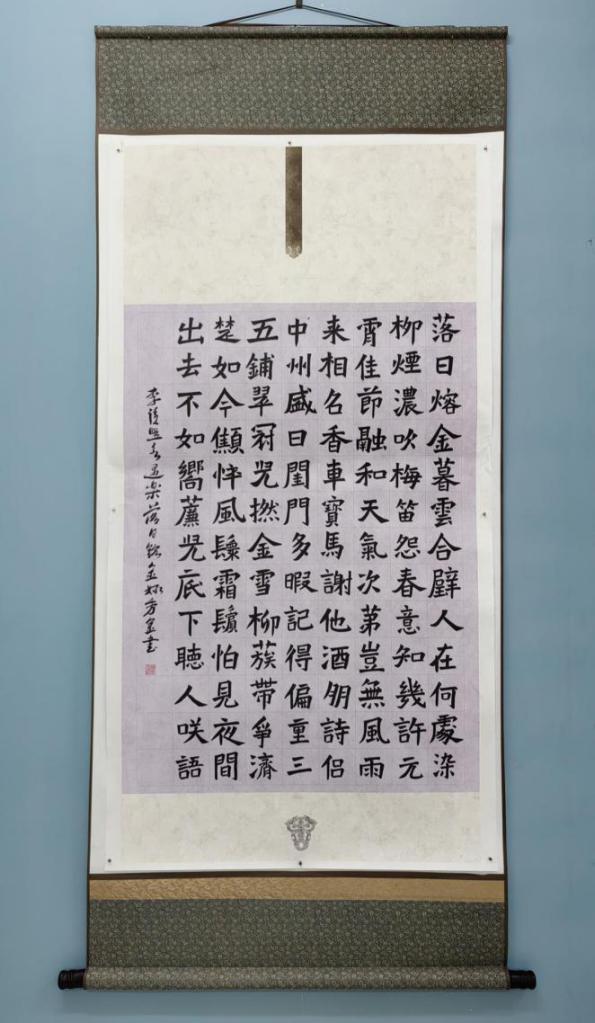 落日熔金暮雲合璧人在何處染
柳煙濃吹梅笛怨春意知幾許元
霄佳節融和天氣次第豈無風雨
来相名香車寶馬謝他酒朋詩侣
中州盛日閨門多暇記得偏重三
五鋪翠冠兒撚金雪柳蔟帶爭濟
楚如今顦悴風鬟霜鬢怕見夜間
出去不如嚮簾兒底下聽人咲語
李清照永遇楽落日熔金